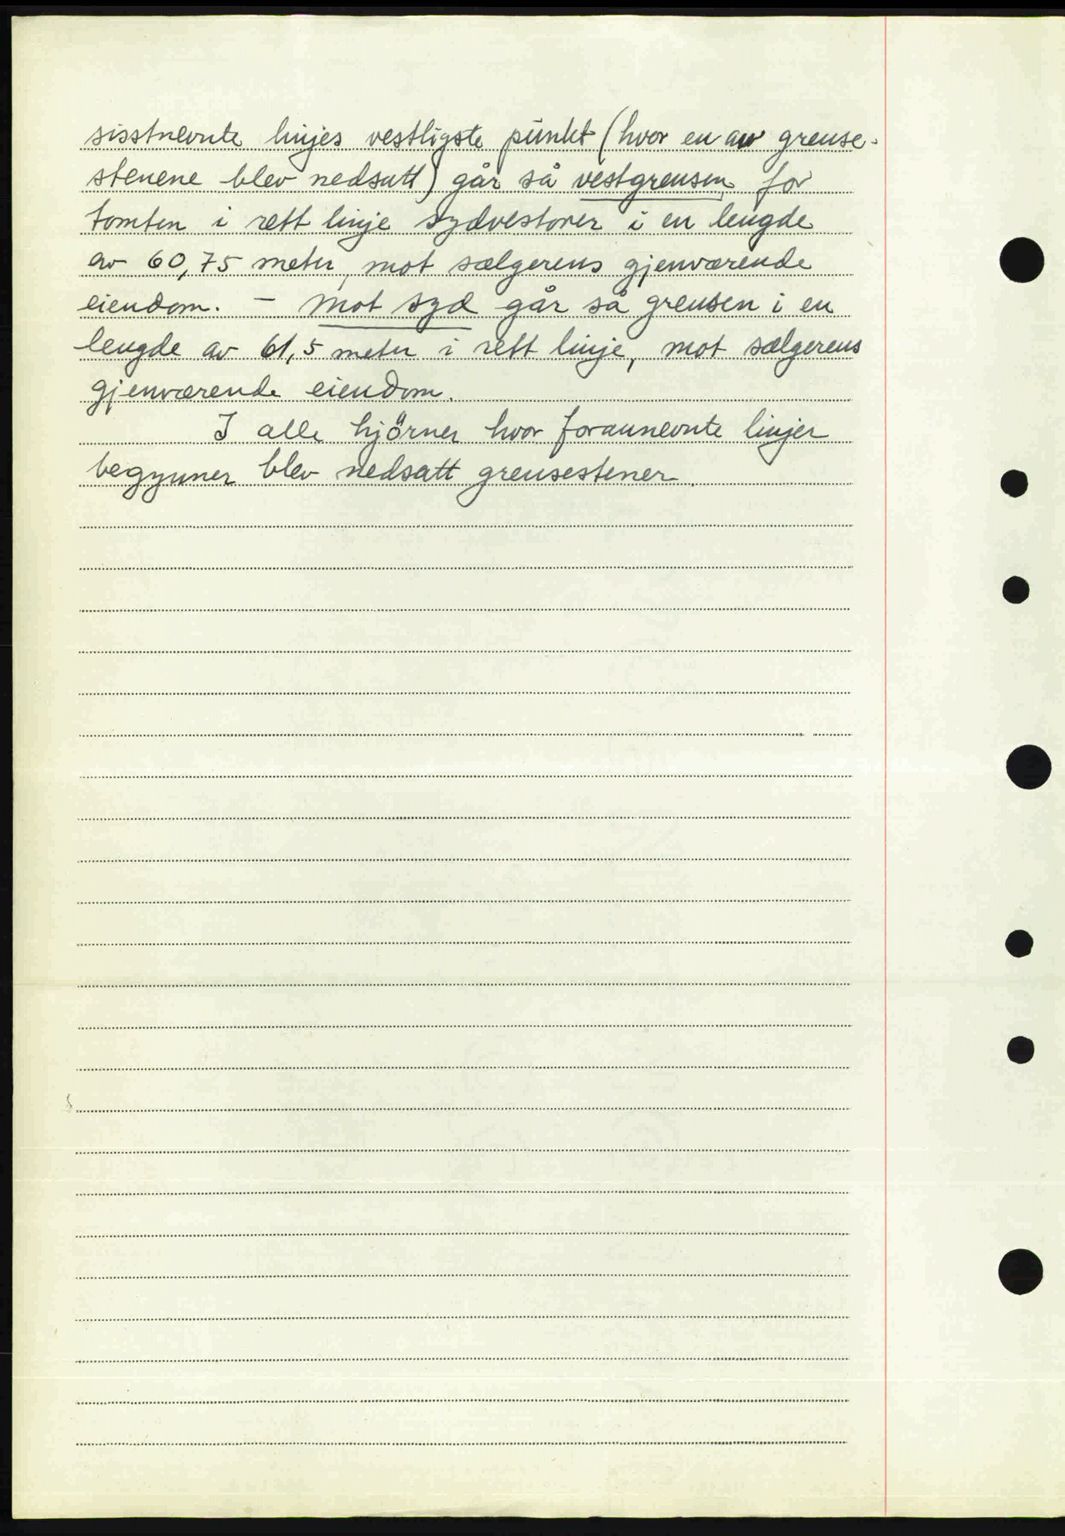 sisstnevnte linjes vestligste punkt (hvor en av grense-
stenene blev nedsatt) går så vestgrensen for
tomten i rett linje sydvestover i en lengde
av 60,75 meter, mot sælgerens gjenværende
eiendom. — Mot syd går så grensen i en
lengde av 61,5 meter i rett linje, mot sælgerens
gjenværende eiendom.
I alle hjörner hvor forannevnte linjer
begynner blev nedsatt grensestener.